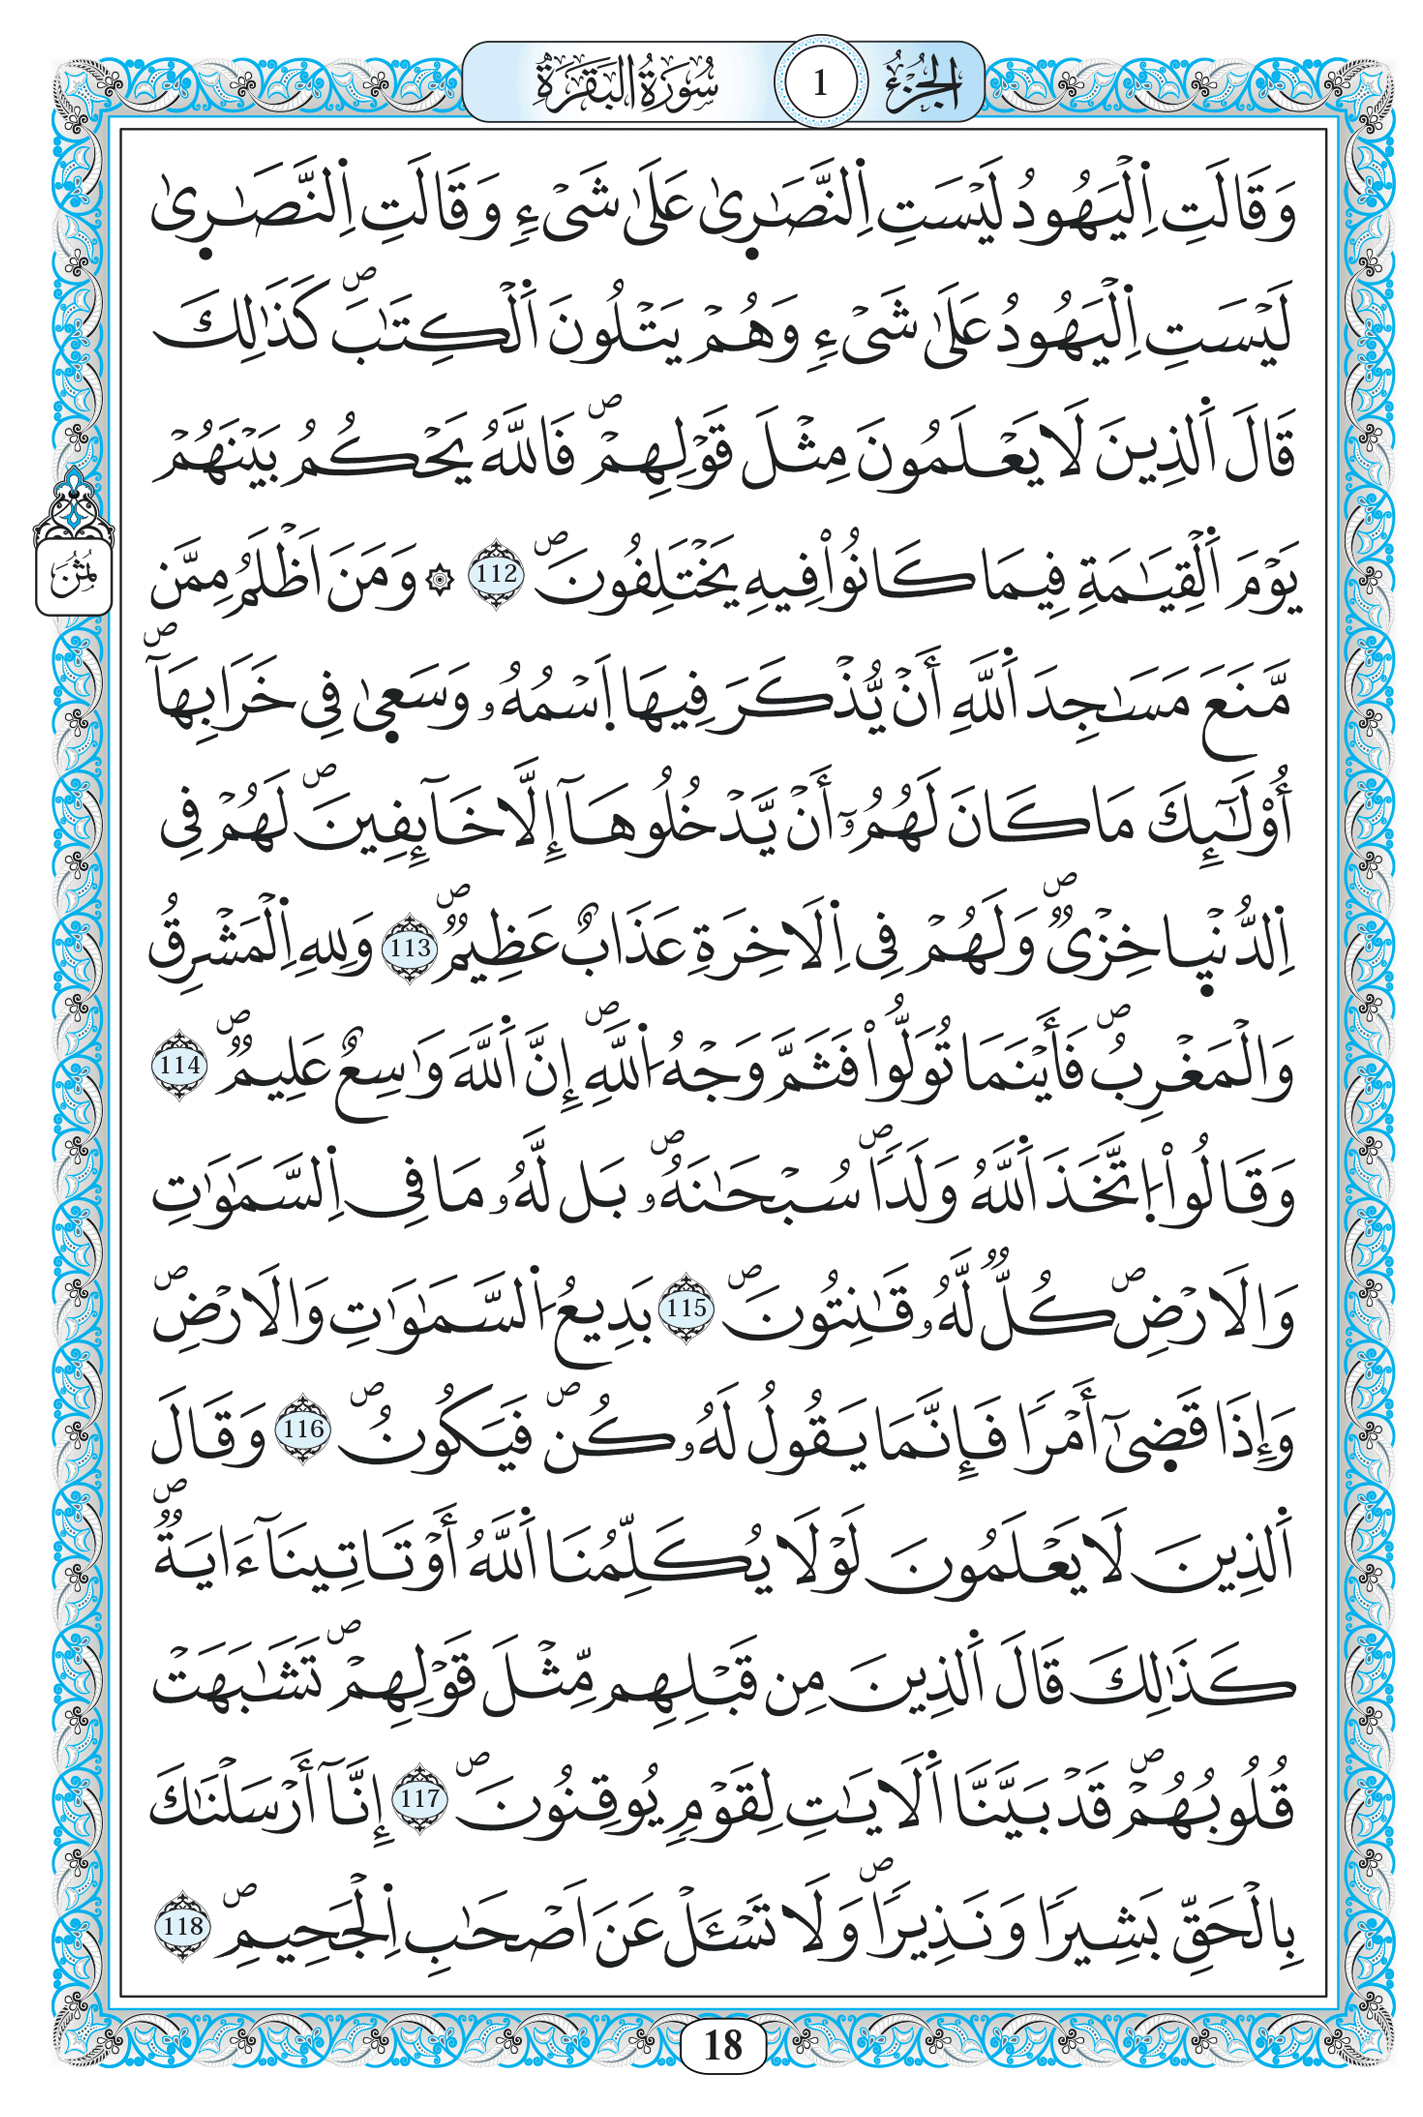 الجُزْءُ 1 سُورَةُ البَقَرَةِ
وَقَالَتِ اِ۬لْيَهُودُ لَيْسَتِ اِ۬لنَّصَٰر۪يٰ عَلَىٰ شَےْءٖ وَقَالَتِ اِ۬لنَّصَٰر۪يٰ
لَيْسَتِ اِ۬لْيَهُودُ عَلَىٰ شَےْءٖ وَهُمْ يَتْلُونَ اَ۬لْكِتَٰبَۖ كَذَٰلِكَ
قَالَ اَ۬لذِينَ لَا يَعْلَمُونَ مِثْلَ قَوْلِهِمْۖ فَاللَّهُ يَحْكُمُ بَيْنَهُمْ
يَوْمَ اَ۬لْقِيَٰمَةِ فِيمَا كَانُواْ فِيهِ يَخْتَلِفُونَۖ 112 ۞ وَمَنَ اَظْلَمُ مِمَّن
ثُمُنْ
مَّنَعَ مَسَٰجِدَ اَ۬للَّهِ أَنْ يُّذْكَرَ فِيهَا اَ۪سْمُهُۥ وَسَع۪يٰ فِے خَرَابِهَآۖ
أُوْلَٰٓئِكَ مَا كَانَ لَهُمُۥٓ أَنْ يَّدْخُلُوهَآ إِلَّا خَآئِفِينَۖ لَهُمْ فِے
اِ۬لدُّنْي۪ا خِزْيٞۖ وَلَهُمْ فِے اِ۬لَاخِرَةِ عَذَابٌ عَظِيمٞۖ 113 وَلِلهِ اِ۬لْمَشْرِقُ
وَالْمَغْرِبُۖ فَأَيْنَمَا تُوَلُّواْ فَثَمَّ وَجْهُ اُ۬للَّهِۖ إِنَّ اَ۬للَّهَ وَٰسِعٌ عَلِيمٞۖ 114
وَقَالُواْ اُ۪تَّخَذَ اَ۬للَّهُ وَلَداٗۖ سُبْحَٰنَهُۥۖ بَل لَّهُۥ مَا فِے اِ۬لسَّمَٰوَٰتِ
وَالَارْضِۖ كُلّٞ لَّهُۥ قَٰنِتُونَۖ 115 بَدِيعُ اُ۬لسَّمَٰوَٰتِ وَالَارْضِۖ
وَإِذَا قَض۪يٰٓ أَمْراٗ فَإِنَّمَا يَقُولُ لَهُۥ كُنۖ فَيَكُونُۖ 116 وَقَالَ
اَ۬لذِينَ لَا يَعْلَمُونَ لَوْلَا يُكَلِّمُنَا اَ۬للَّهُ أَوْ تَاتِينَآ ءَايَةٞۖ
كَذَٰلِكَ قَالَ اَ۬لذِينَ مِن قَبْلِهِم مِّثْلَ قَوْلِهِمْۖ تَشَٰبَهَتْ
قُلُوبُهُمْۖ قَدْ بَيَّنَّا اَ۬لَايَٰتِ لِقَوْمٖ يُوقِنُونَۖ 117 إِنَّآ أَرْسَلْنَٰكَ
بِالْحَقِّ بَشِيراٗ وَنَذِيراٗۖ وَلَا تَسْـَٔلْ عَنَ اَصْحَٰبِ اِ۬لْجَحِيمِۖ 118
18